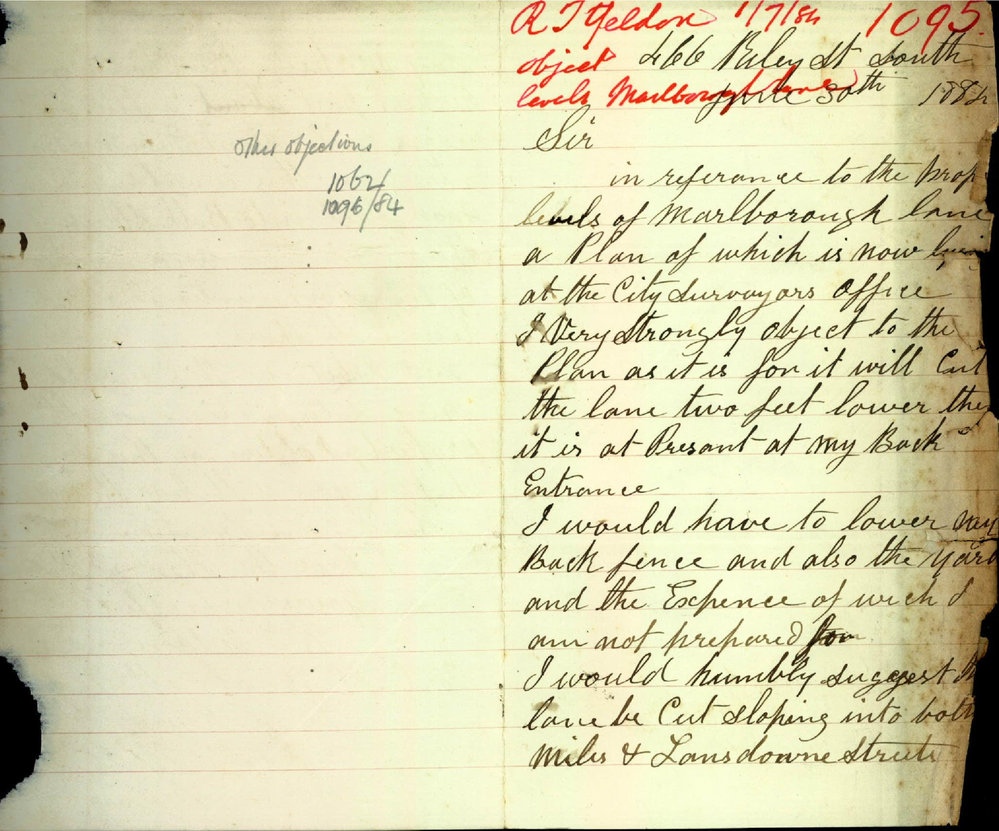 other objections
1064
1096/84
R T Yeldon 1/7/84 1095
object 466 Riley St South
levels Marlborough lane
June 30th 1884
Sir
in referance to the Prop
levels of Marlborough lane
a Plan of which is now
at the City Survayors Office
I Very Strongly object to the
Plan as it is for it will Cut
the lane two feet lower the
it is at Presant at my Back
Entrance
I would have to lower my
Back fence and also the yard
and the Expence of wich I
am not prepared for
I would humbly suggest
lane be Cut sloping into both
Miles & Lansdowne Streets